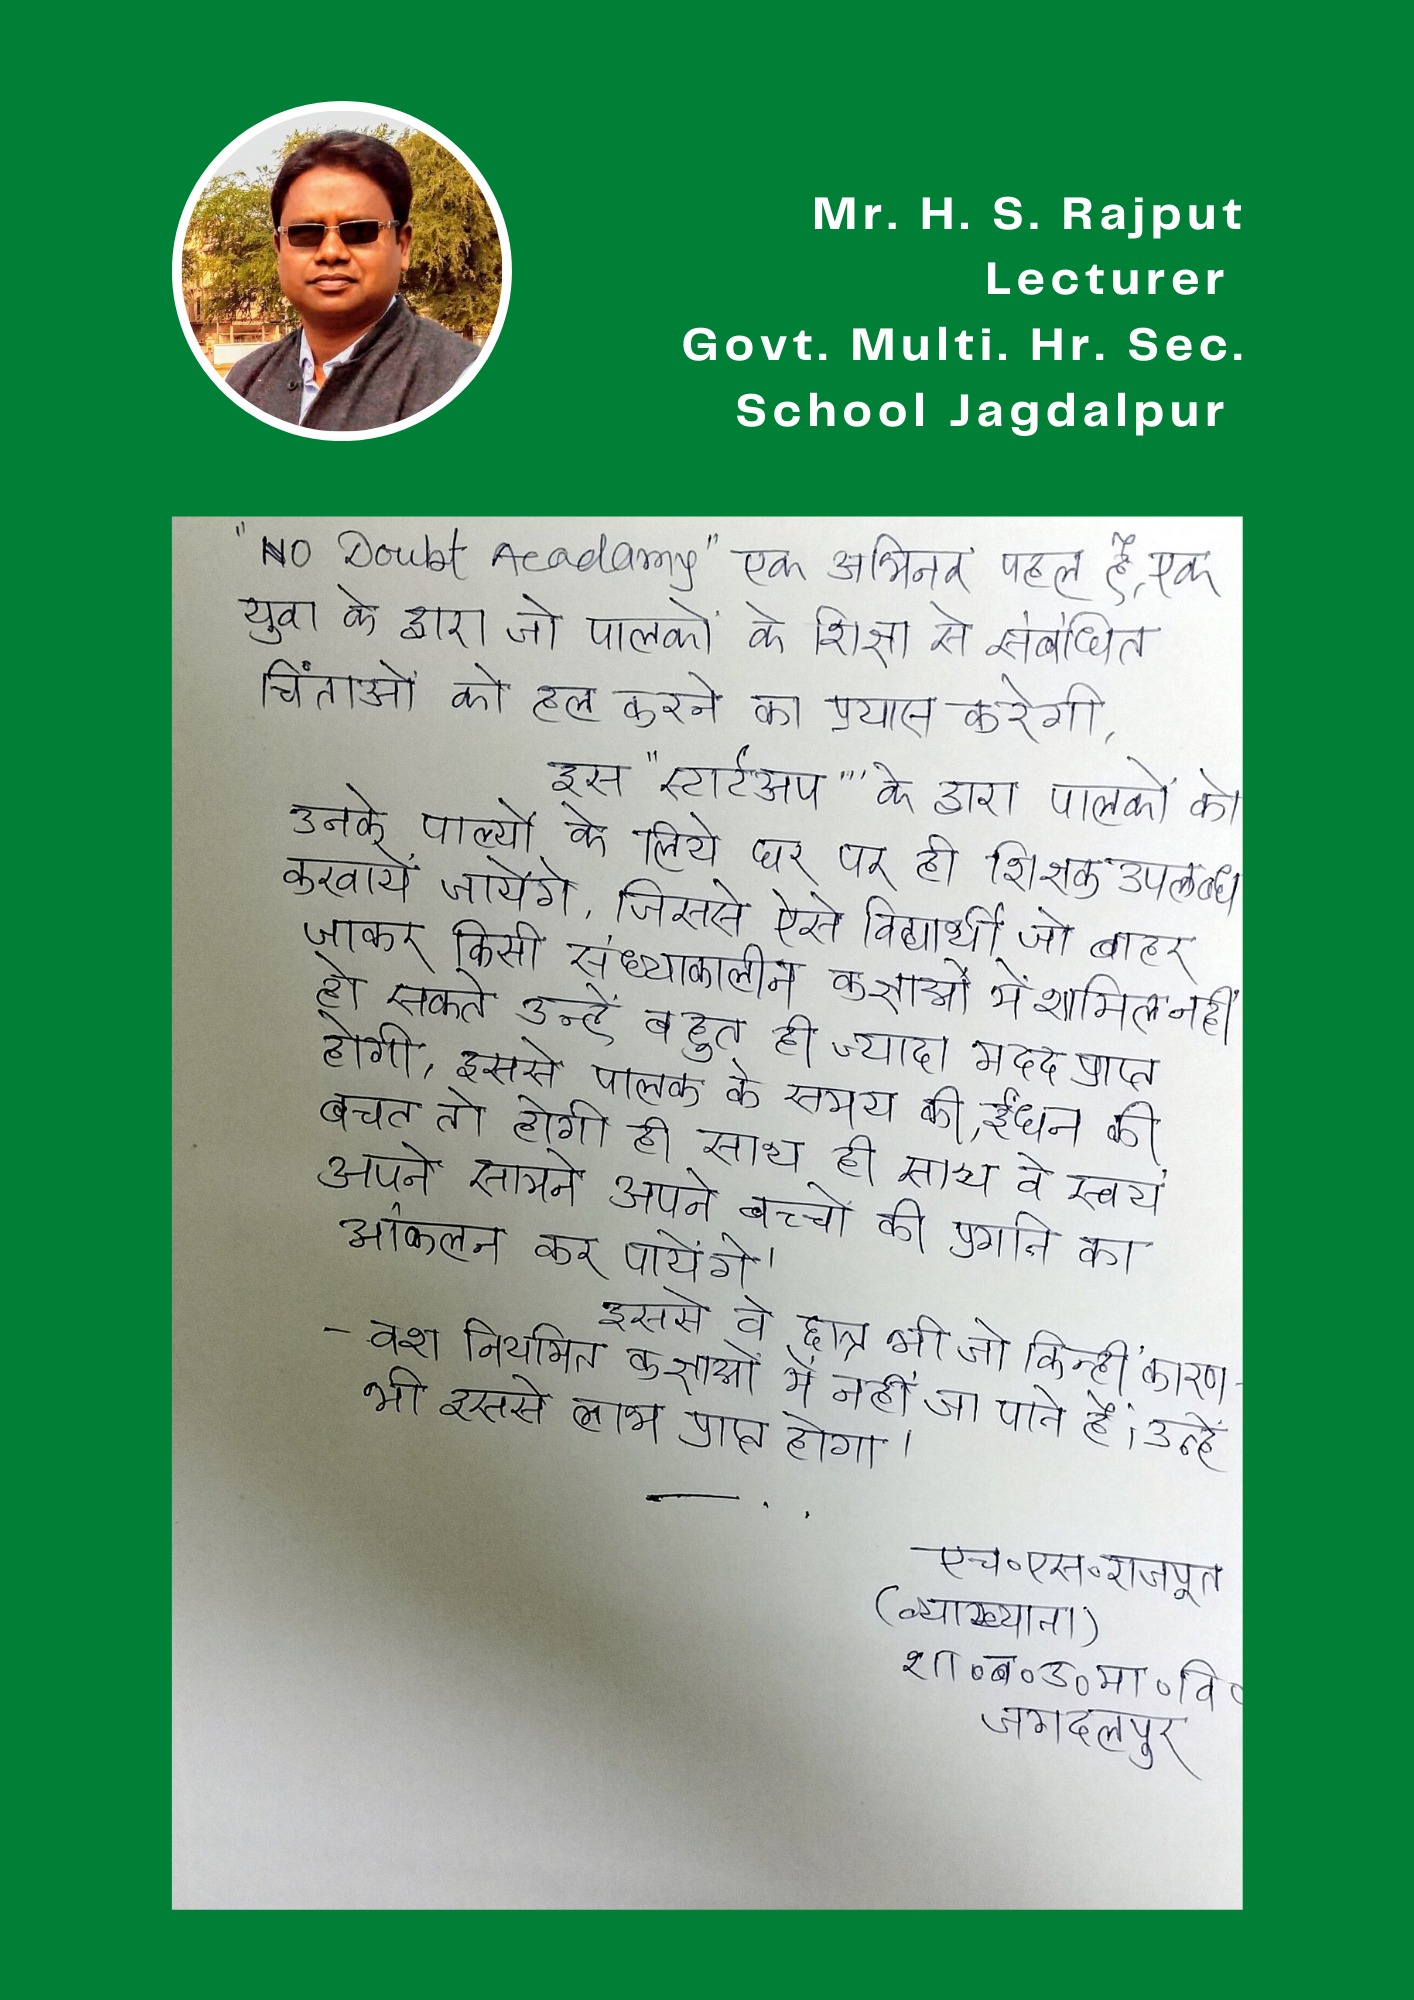 Mr. H. S. Rajput
Lecturer
Govt. Multi. Hr. Sec.
School Jagdalpur
"NO Doubt Acadamy" एक अभिनव पहल है, एक
युवा के द्वारा जो पालकों के शिक्षा से संबंधित
चिंताओं को हल करने का प्रयास करेगी,
इस "स्टार्टअप"" के द्वारा पालकों को
उनके पाल्यों के लिये घर पर ही शिक्षक उपलब्ध
करवायें जायेंगे, जिससे ऐसे विद्यार्थी जो बाहर
जाकर किसी संध्याकालीन कक्षाओं में शामिल नहीं
हो सकते उन्हें बहुत ही ज्यादा मदद प्राप्त
होगी, इससे पालक के समय की, ईंधन की
बचत तो होगी ही साथ ही साथ वे स्वयं
अपने सामने अपने बच्चों की प्रगति का
आंकलन कर पायेंगे।
इससे वे छात्र भी जो किन्हीं कारण-
- वश नियमित कक्षाओं में नहीं जा पाते हैं; उन्हें
भी इससे लाभ प्राप्त होगा।
एच॰एस॰राजपूत
(व्याख्याता)
शा॰ब॰उ॰मा॰वि॰
जगदलपुर